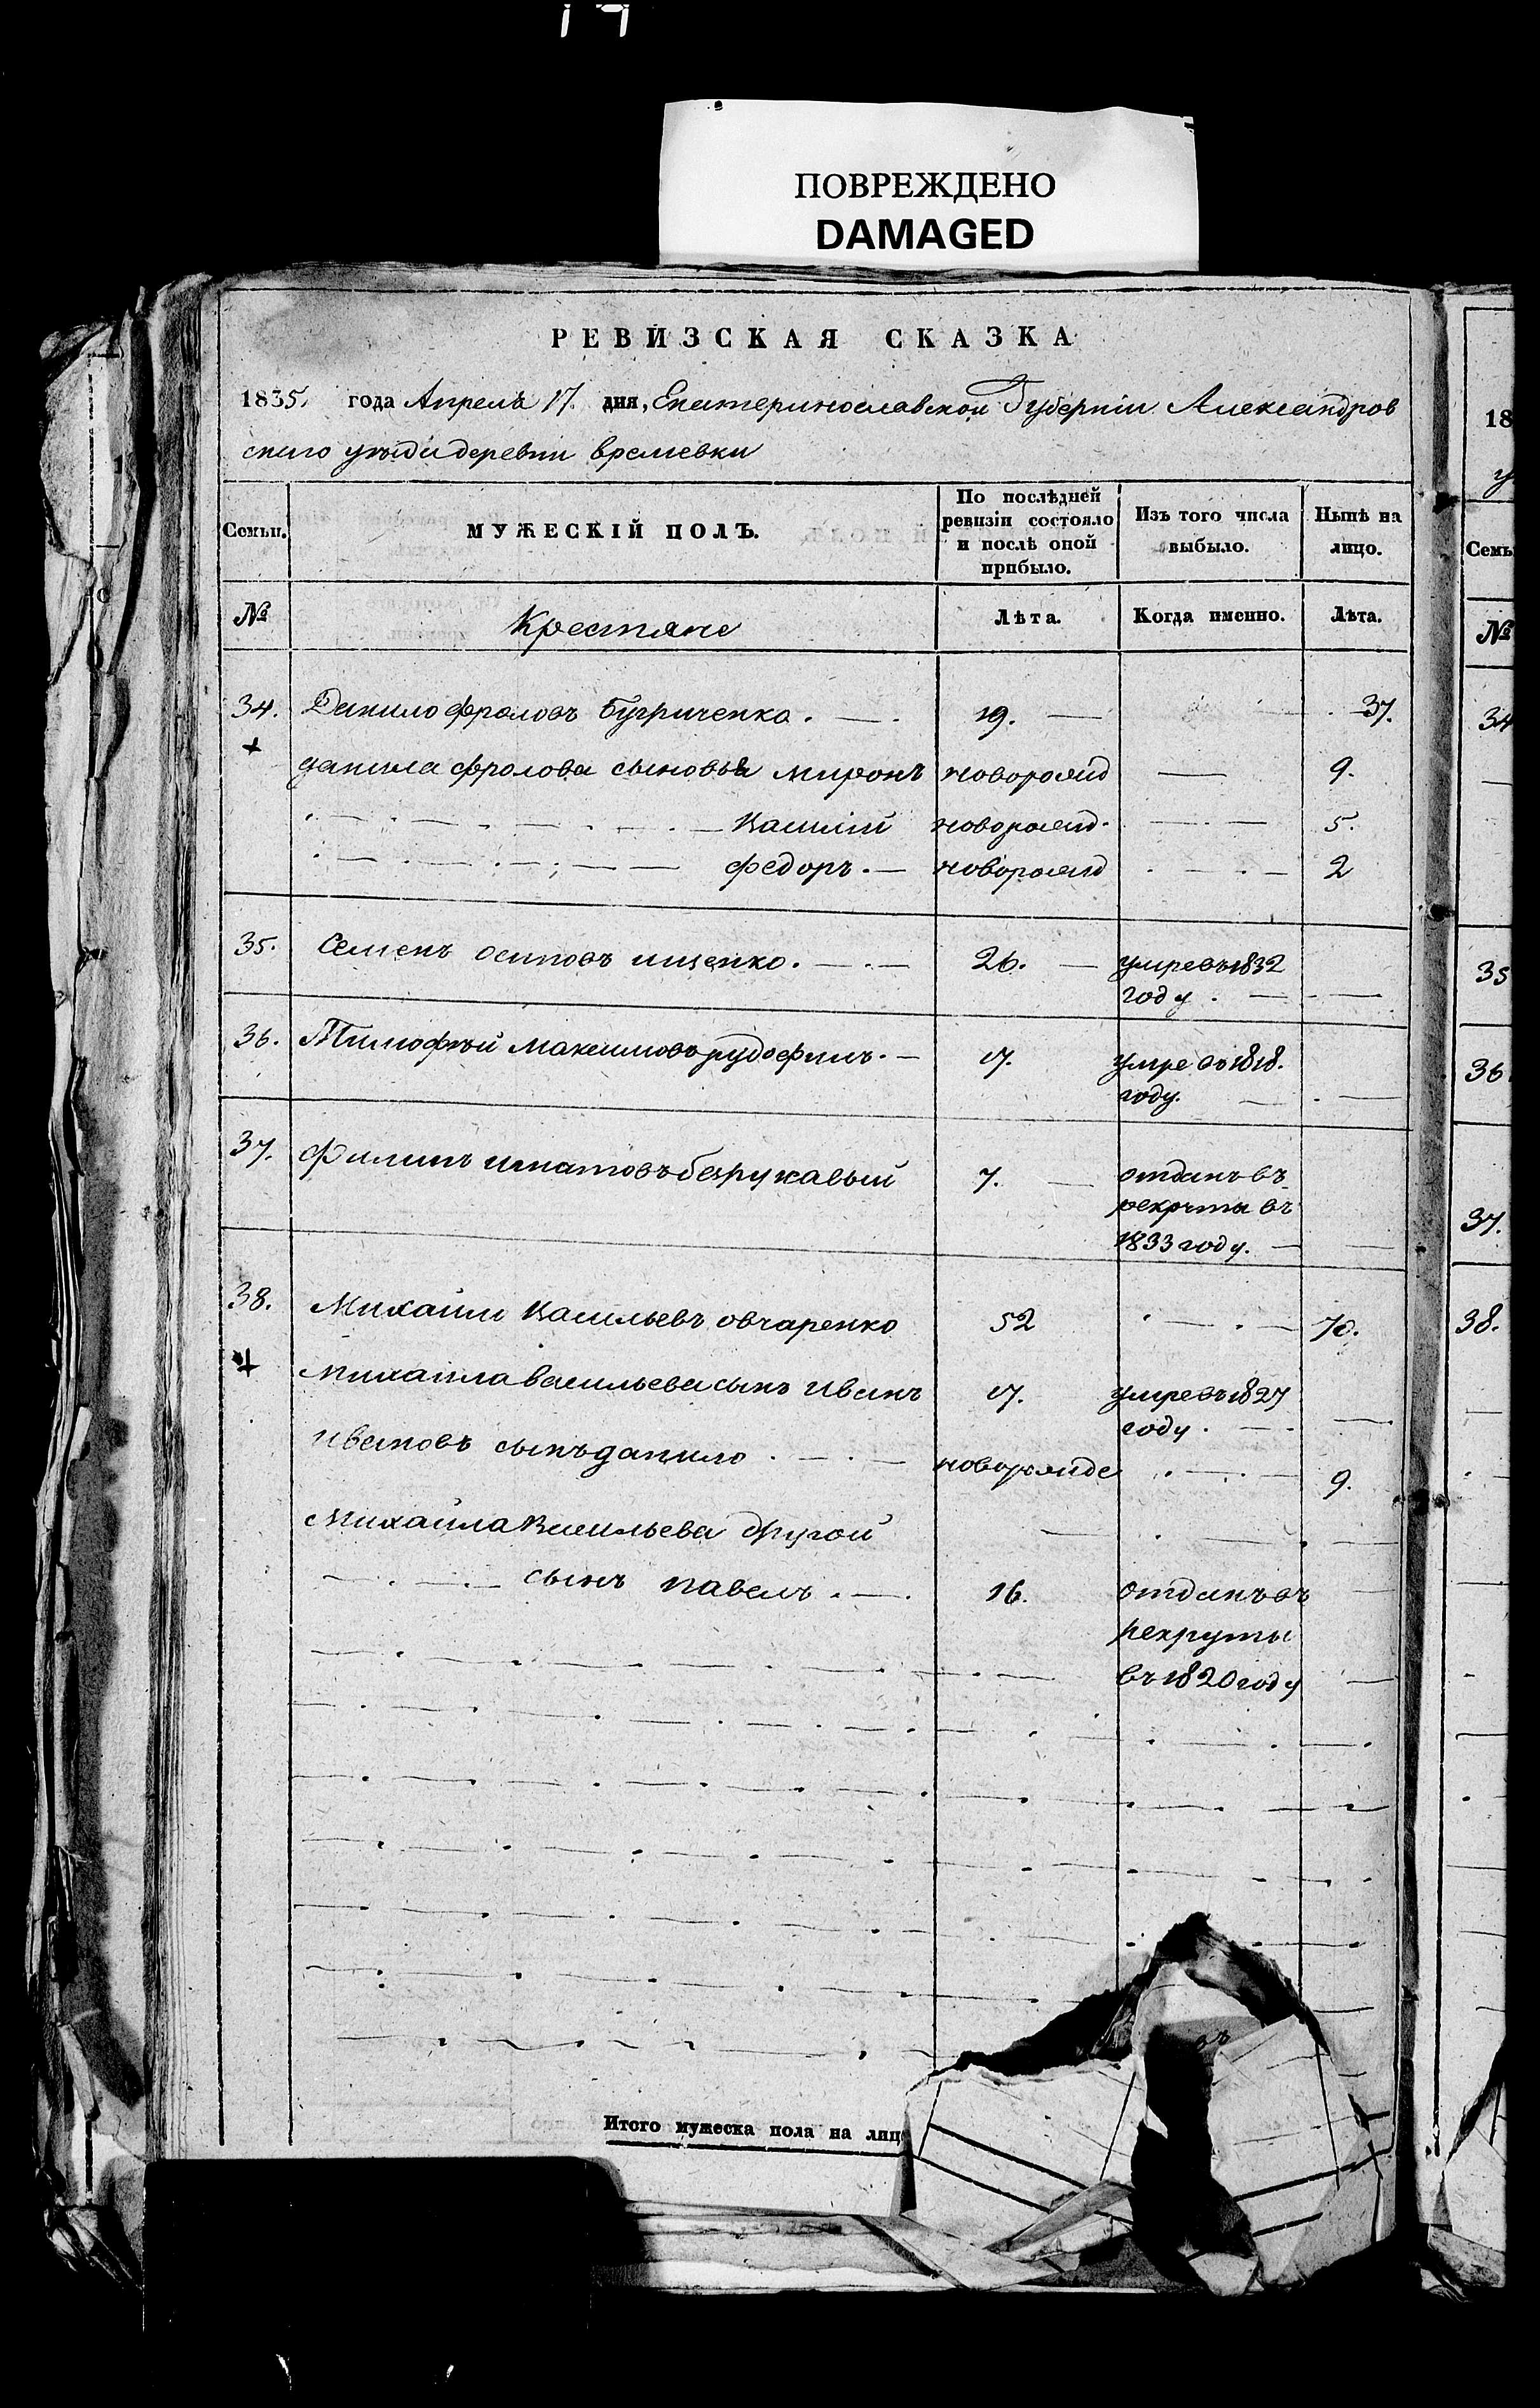 ПОВРЕЖДЕНО
DAMAGED
РЕВИЗСКАЯ СКАЗКА
1835, года Апреля 17. дня, Екатеринославской Губерніи Александров
скаго уѣзда деревни времевки
Семьи. МУЖЕСКІЙ ПОЛЪ. По послѣдней ревизіи состояло и послѣ оной прибыло. Изъ того числа выбыло. Нынѣ на лицо.
№ Крестяне Лѣта. Когда именно. Лѣта.
34. Данило фроловъ Бугриченко. 19. 37.
данила фролова сыновья миронъ новорожд 9.
Василій новорожд. 5.
федоръ. новорожд 2
35. Семенъ осиповъ ищенко. 26. умре въ 1832
году.
36. Тимофѣй максимовъ 17. умре въ 1818.
году.
37. Филипъ игнатовъ безрукавый 7. отданъ въ
рекруты въ
1833 году.
38. Михайло Васильевъ овчаренко 52 70.
михайла васильева сынъ иванъ 17. умре въ 1827
году.
ивановъ сынъ данило новорожде 9.
михайла Васильева другой
сынъ павелъ. 16. отданъ въ
рекруты
въ 1820 году
Итого мужеска пола на лиц
18
Семь
№
34
35
36
37.
38.